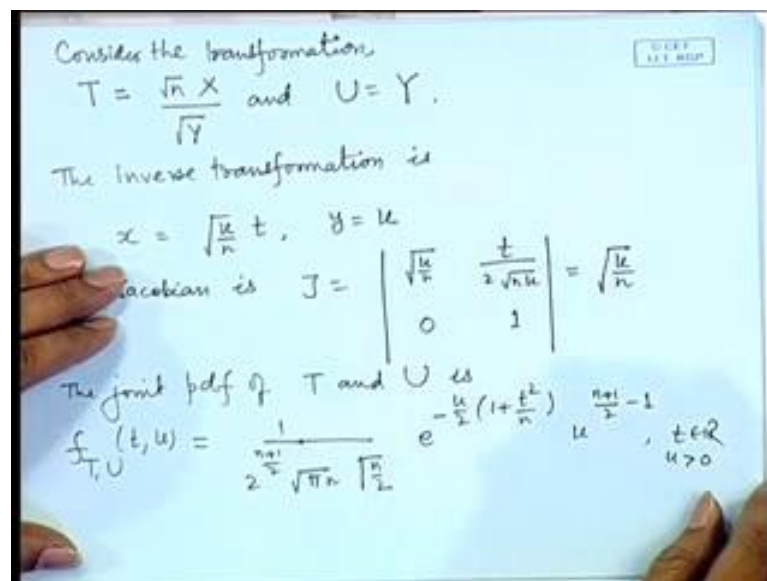 Consider the transformation,
T = √n X / √Y and U = Y.
The inverse transformation is
x = √(u/n) t, y = u
acobian is J = | √(u/n) t/(2√(nu)) ; 0 1 | = √(u/n)
The joint pdf of T and U is
f_{T,U}(t,u) = 1 / (2^{(n+1)/2} √(πn) Γ(n/2)) e^{-u/2 (1+t²/n)} u^{(n+1)/2 - 1}, t∈R
u>0